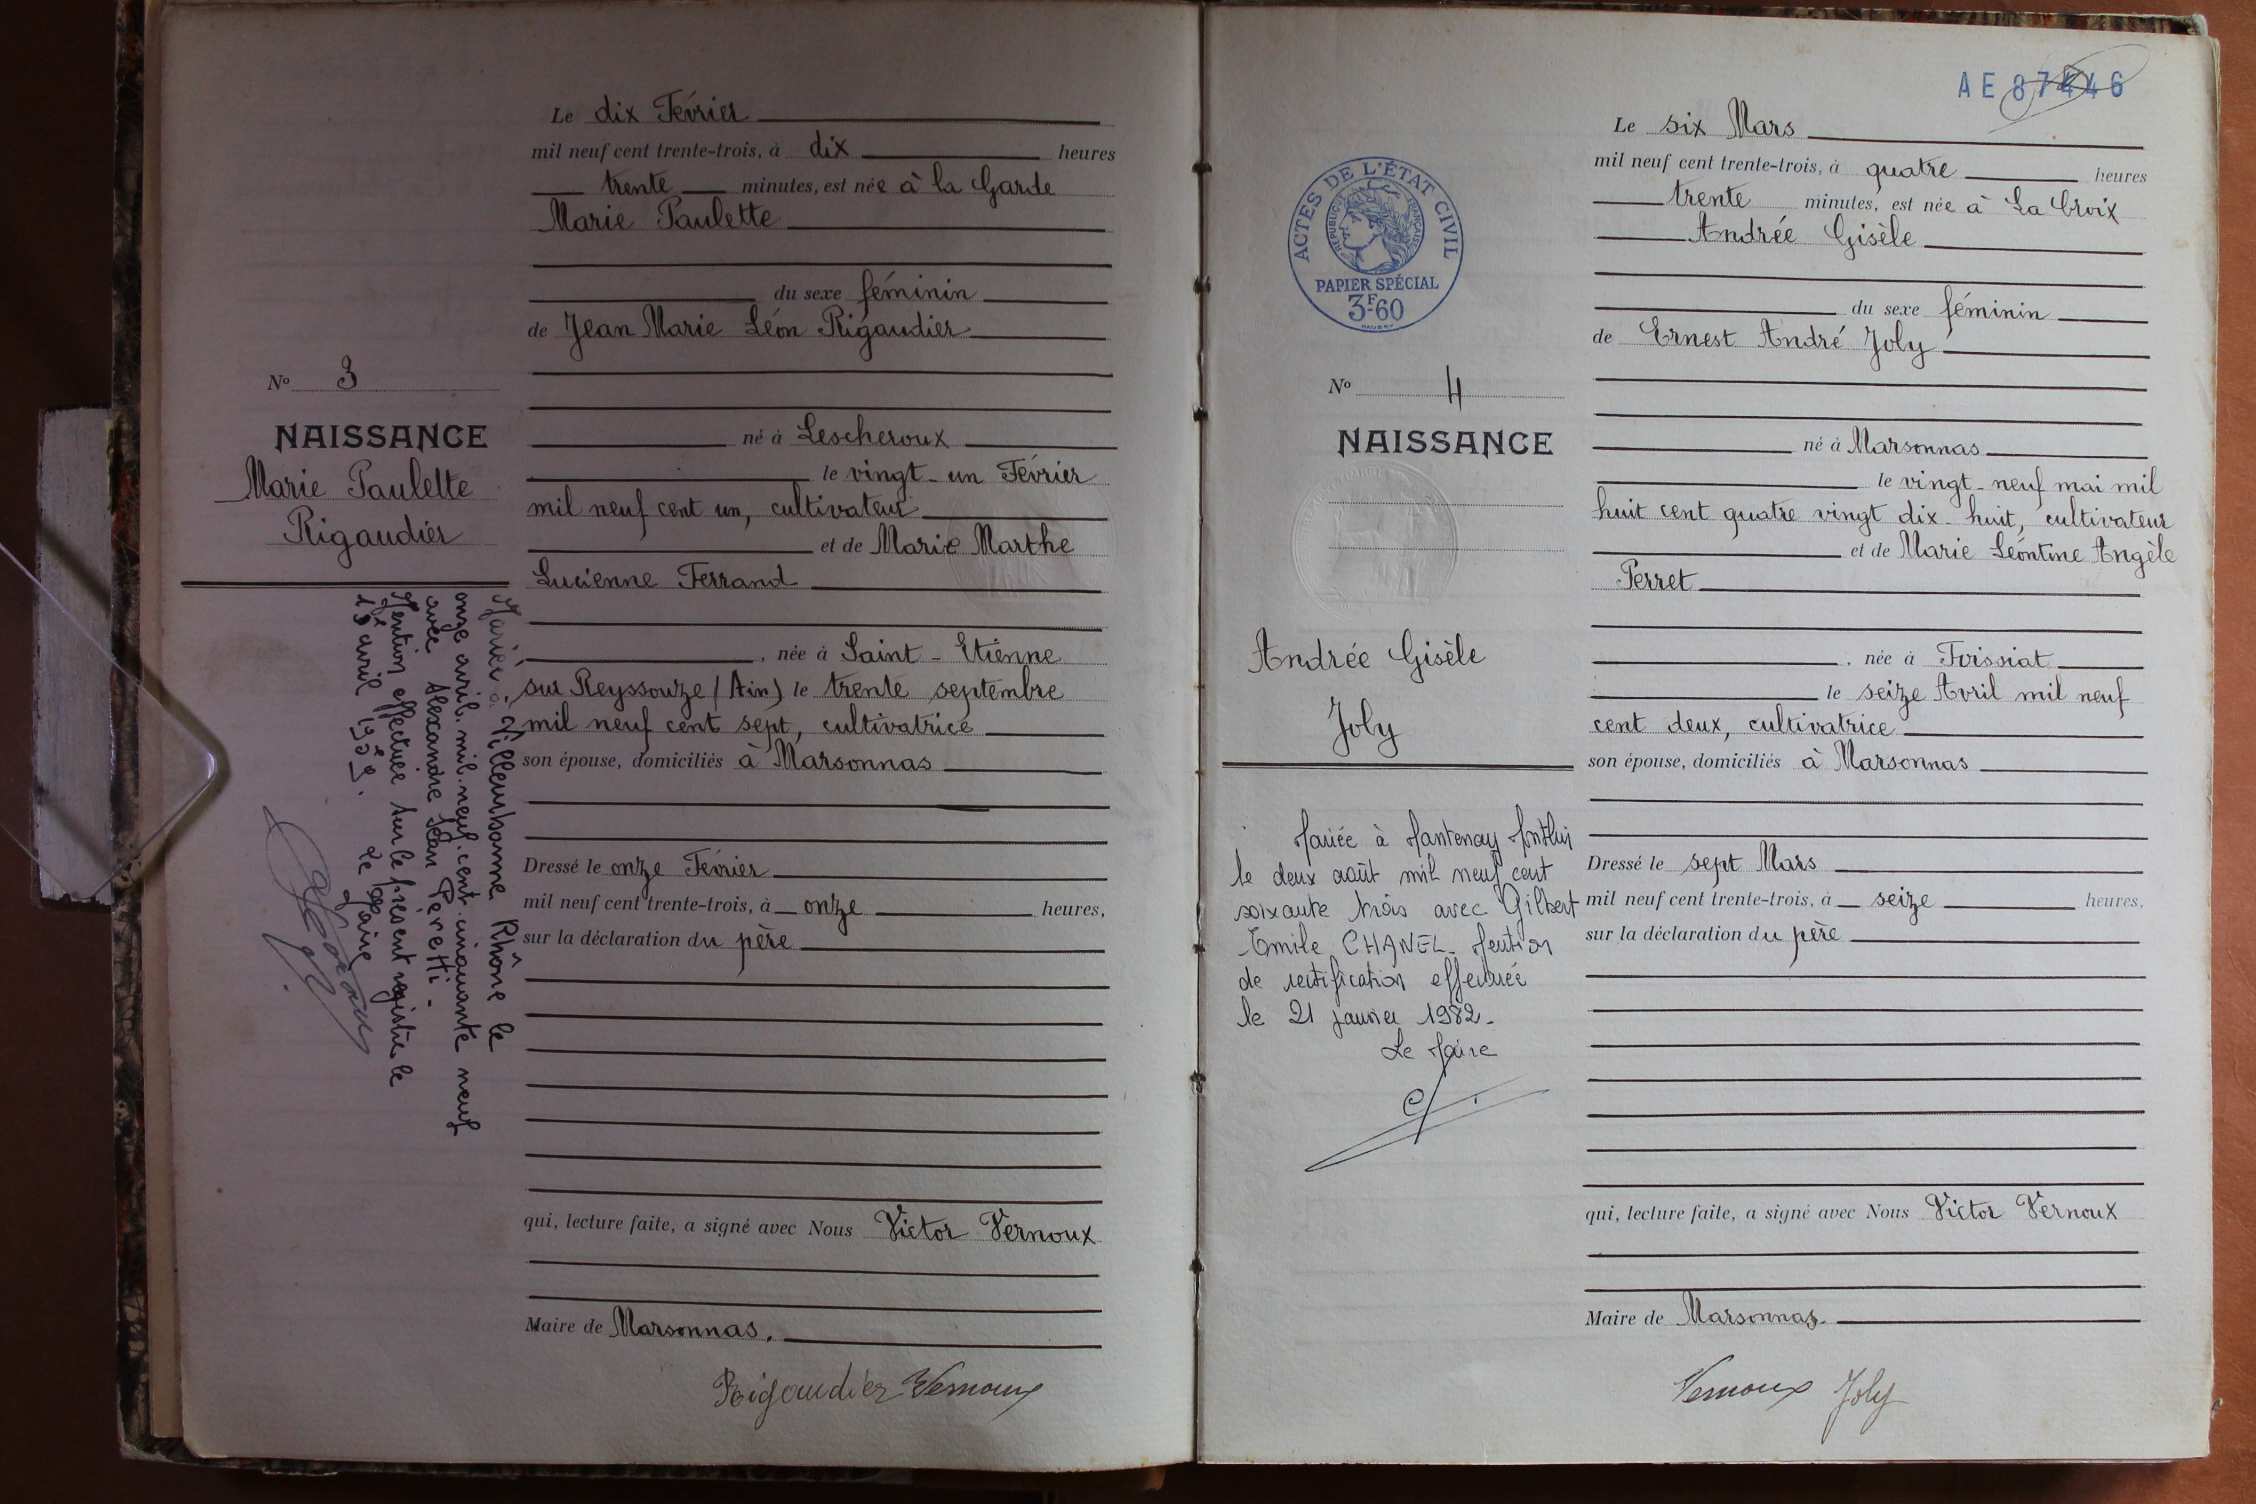 Le dix Février
mil neuf cent trente-trois, à dix heures
trente minutes, est née à la Garde
Marie Paulette
du sexe féminin
de Jean Marie Léon Rigaudier
né à Lescheroux
le vingt-un Février
mil neuf cent un, cultivateur
et de Marie Marthe
Lucienne Ferrand
, née à Saint-Etienne
sur Reyssouze (Ain) le trente septembre
mil neuf cent sept, cultivatrice
son épouse, domiciliés à Marsonnas
Dressé le onze Février
mil neuf cent trente-trois, à onze heures,
sur la déclaration du père
qui, lecture faite, a signé avec Nous Victor Vernoux
Maire de Marsonnas.
Rigaudier Vernoux
No 3
NAISSANCE
Marie Paulette
Rigaudier
Mariée à Villeurbanne Rhône le
onze avril mil neuf cent cinquante neuf
avec Alexandre Jean Peretti -
Mention effectuée sur le présent registre le
13 avril 1959. Le Maire
AE 87446
Le six Mars
mil neuf cent trente-trois, à quatre heures
trente minutes, est née à La Croix
Andrée Gisèle
du sexe féminin
de Ernest André Joly
né à Marsonnas
le vingt-neuf mai mil
huit cent quatre vingt dix-huit, cultivateur
et de Marie Léontine Angèle
Perret
, née à Foissiat
le seize Avril mil neuf
cent deux, cultivatrice
son épouse, domiciliés à Marsonnas
Dressé le sept Mars
mil neuf cent trente-trois, à seize heures,
sur la déclaration du père
qui, lecture faite, a signé avec Nous Victor Vernoux
Maire de Marsonnas
Vernoux Joly
ACTES DE L'ÉTAT CIVIL
RÉPUBLIQUE FRANÇAISE
PAPIER SPÉCIAL
3F60
No 4
NAISSANCE
Andrée Gisèle
Joly
Mariée à Mantenay Montlin
le deux août mil neuf cent
soixante trois avec Gilbert
Emile CHANEL - Mention
de rectification effectuée
le 21 janvier 1982 -
Le Maire